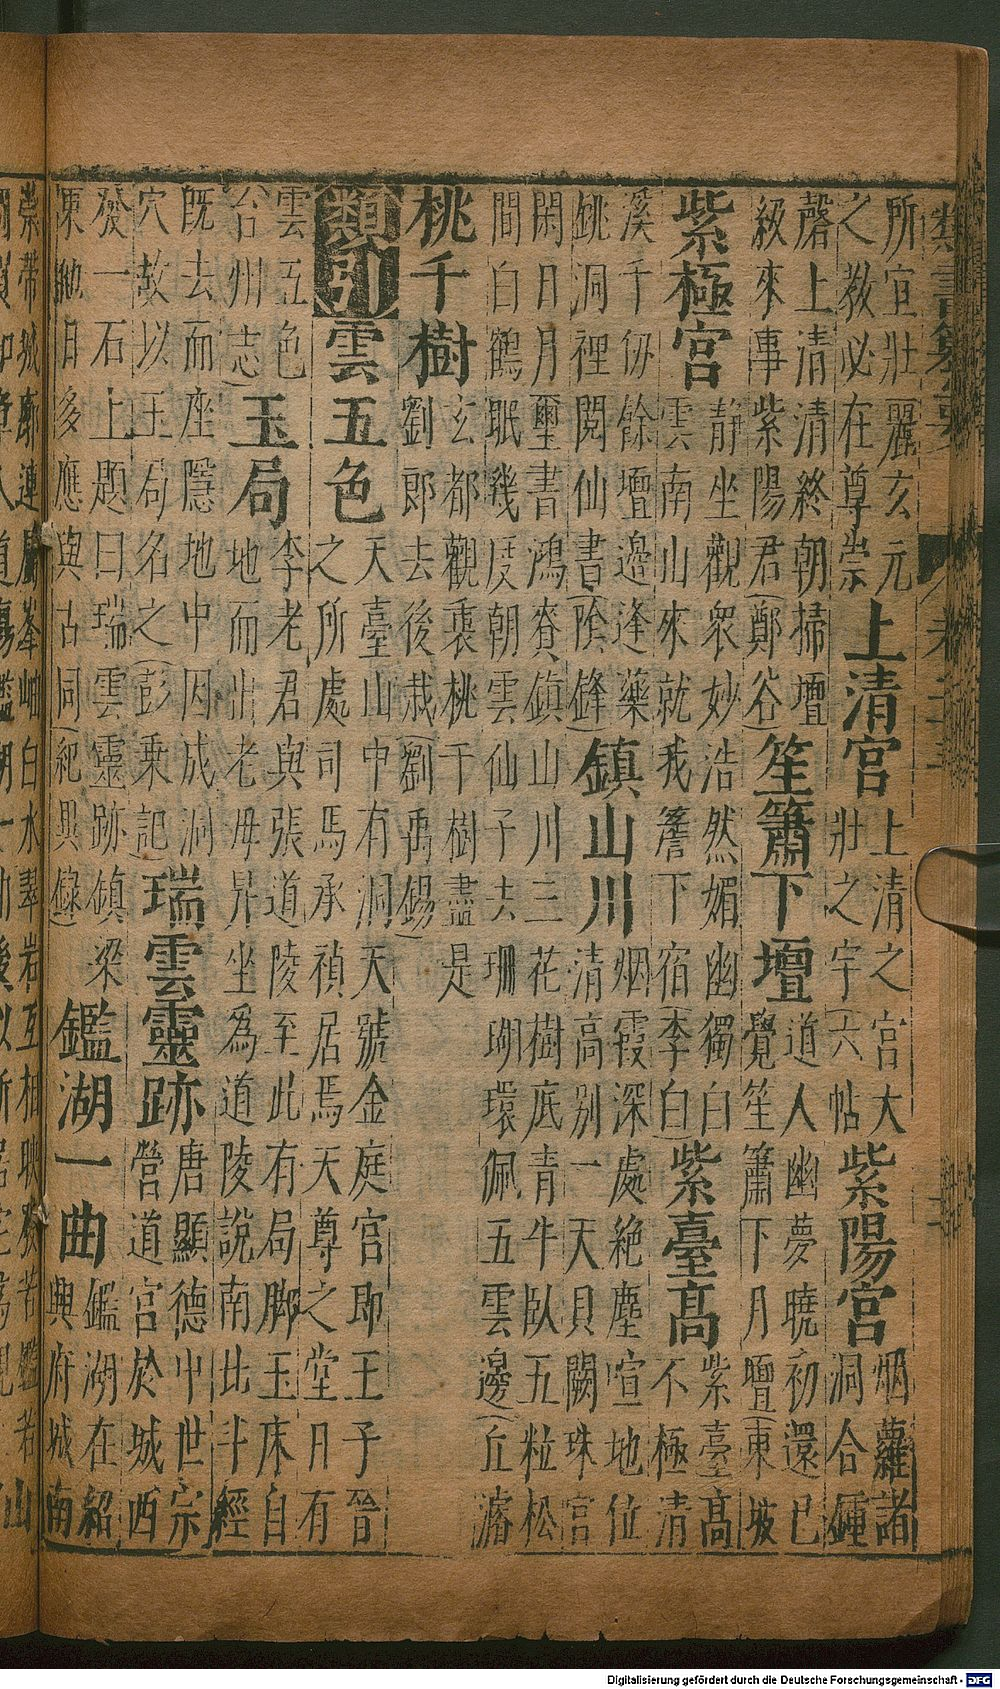 類書纂要
所宜壯麗玄元
之教必在尊崇
上清宮
上清之宮大
壯之宇(六帖
紫陽宮
烟蘿諸
洞合鍾
磬上清清終朝掃壇
級來事紫陽君(鄭谷)
笙簫下壇
道人幽夢曉初還已
覺笙簫下月壇(東坡
紫極宮
静坐觀衆妙浩然媚幽獨白
雲南山來就我簷下宿(李白)
紫臺高
紫臺高
不極清
溪千仞餘壇邊逢藥
銚洞裡閱仙書(鋒)
鎮山川
烟霞深處絶塵宣地位
清高别一天貝闕珠宮
閑日月璽書鴻賚鎮山川三花樹底青牛臥五粒松
間白鶴眠幾度朝雲仙子去珊瑚環佩五雲邊(丘濬
桃千樹
玄都觀裏桃千樹盡是
劉郎去後栽(劉禹錫)
類引
雲五色
天臺山中有洞天號金庭宮即王子晉
之所處司馬承禎居焉天尊之堂日有
雲五色
台州志)
玉局
李老君與張道陵至此有局脚玉床自
地而出老母昇坐為道陵說南北斗經
既去而座隱地中因成洞
穴故以玉局名之(彭乘記)
瑞雲靈跡
唐顯德中世宗
營道宮於城西
發一石上題曰瑞雲靈跡鎮梁
東目多應與古同(紀異錄)
鑑湖一曲
鑑湖在紹
興府城南
帶城郭連屬峯岫白水翠岩互相映發若鑑若
Digitalisierung gefördert durch die Deutsche Forschungsgemeinschaft - DFG